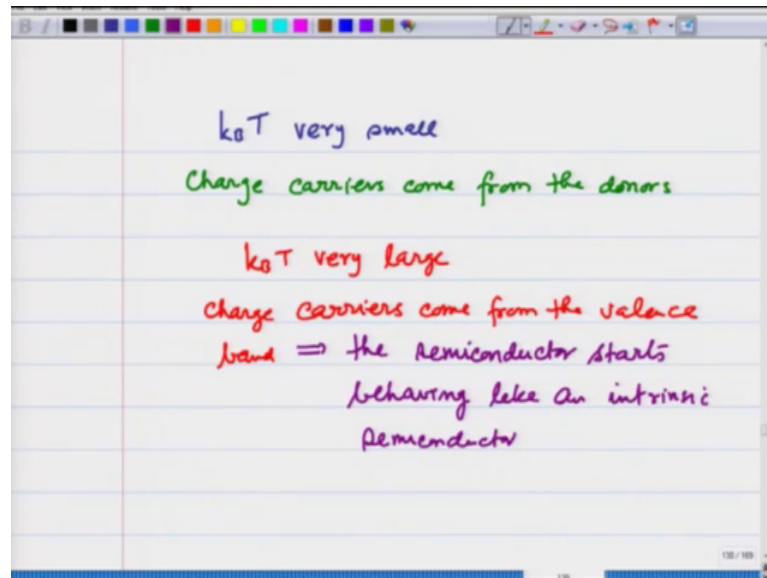 k_BT very small
Charge carriers come from the donors
k_BT very large
Charge carriers come from the valence
band ⇒ the semiconductor starts
behaving like an intrinsic
semiconductor
130 / 169